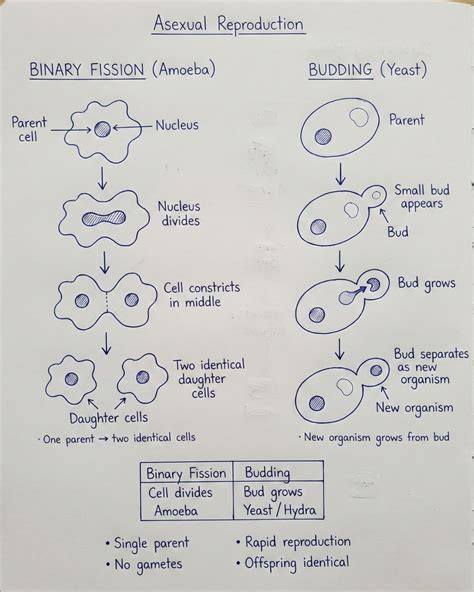 Asexual Reproduction
BINARY FISSION (Amoeba)
Parent
cell
Nucleus
Nucleus
divides
Cell constricts
in middle
Two identical
daughter
cells
Daughter cells
· One parent → two identical cells
BUDDING (Yeast)
Parent
Small bud
appears
Bud
Bud grows
Bud separates
as new
organism
New organism
· New organism grows from bud
Binary Fission Budding
Cell divides Bud grows
Amoeba Yeast / Hydra
• Single parent
• No gametes
• Rapid reproduction
• Offspring identical